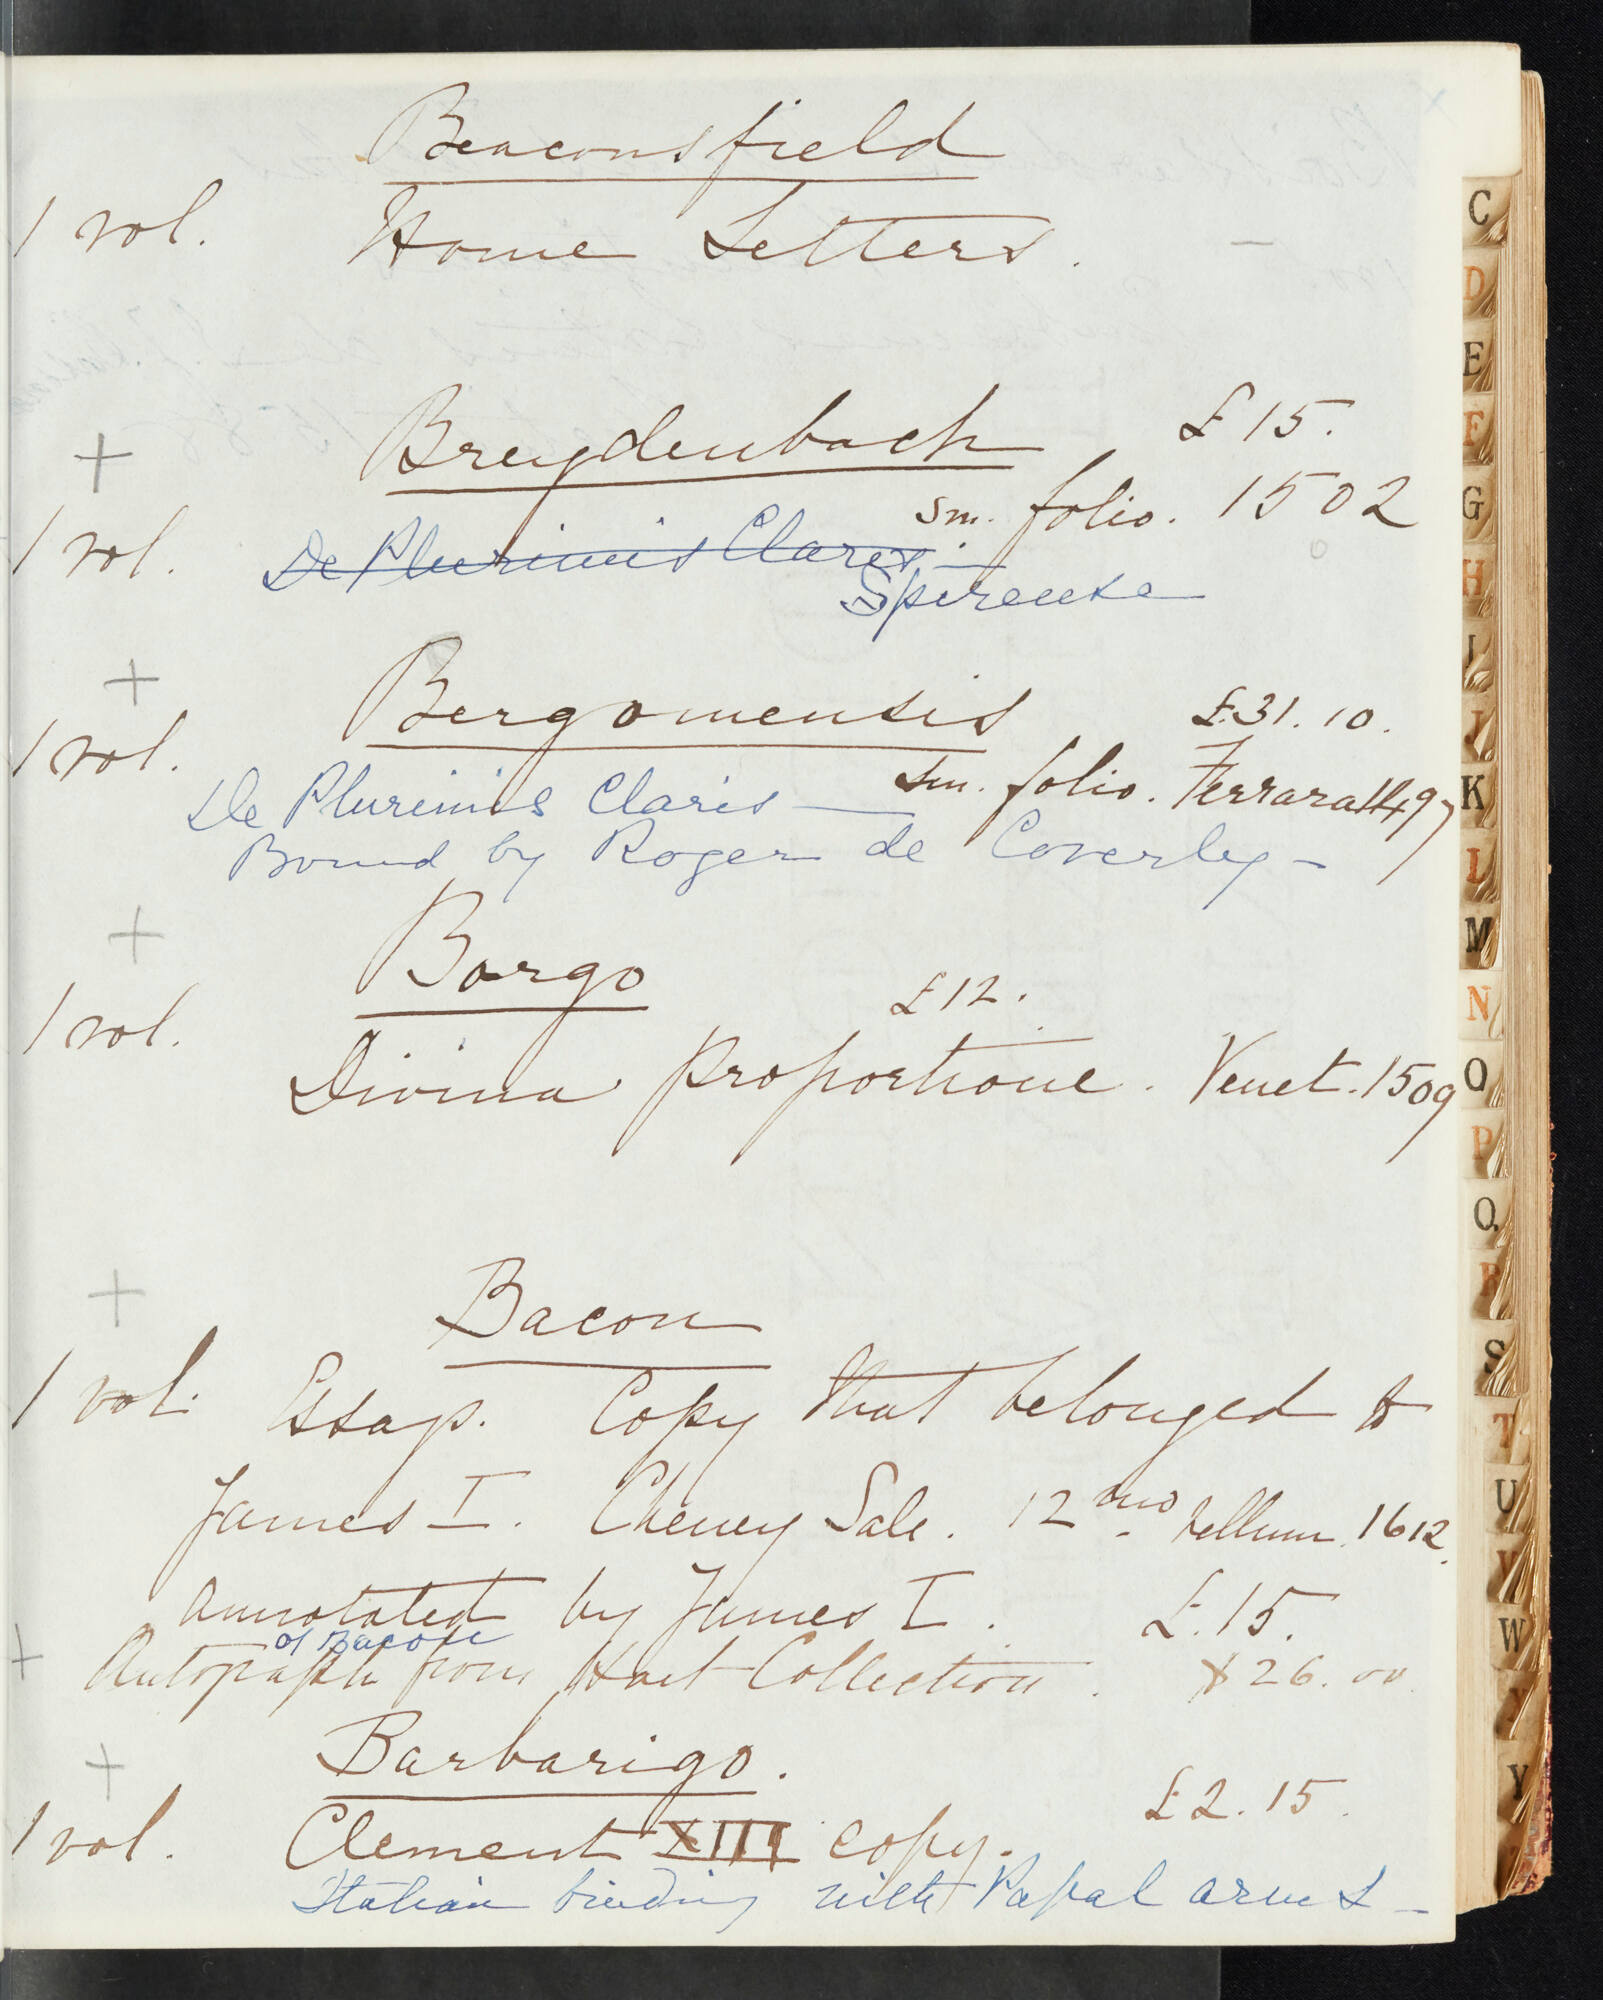 Beaconsfield
1 vol. Home Letters. —
+ Breydenbach £15.
1 vol. sm. folio. 1502
De Plurimis Claris —
Spirensia
+ Bergomensis £31.10.
1 vol. sm. folio. Ferrara 1497
De Plurimis Claris —
Bound by Roger de Coverley —
+ Borgo £12.
1 vol. Divina proportione. Venet. 1509
+ Bacon
1 vol. Essays. Copy that belonged to
James I. Cheney Sale. 12mo. vellum. 1612.
Annotated by James I. £.15.
of Bacon
+ Autograph from Collection. $26.00
+ Barbarigo. £2.15.
1 vol. Clement XIII copy.
Italian binding with Papal arms —
C
D
E
F
G
H
I
J
K
L
M
N
O
P
Q
R
S
T
U
V
W
X
Y